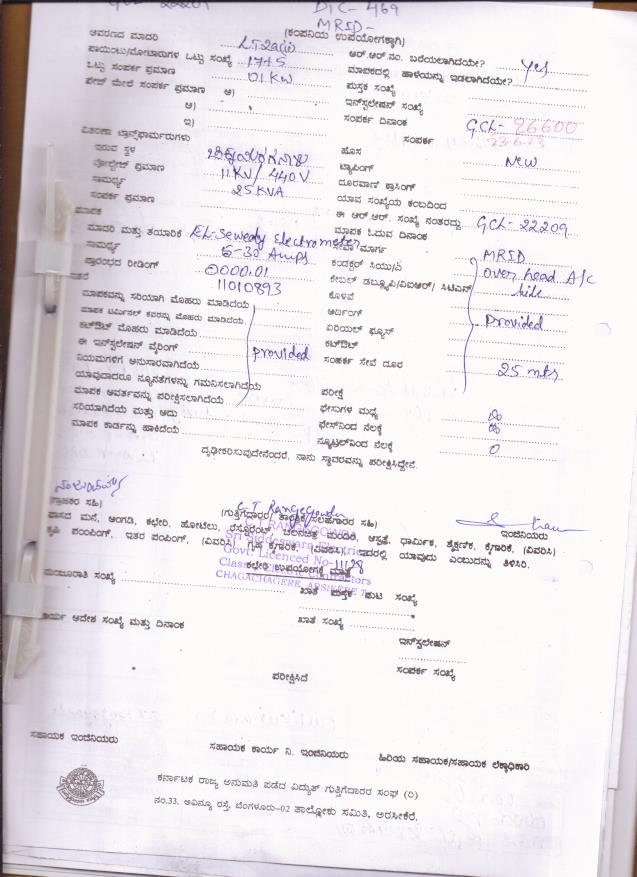 GCL 22201 DIC-469
MRID-
(ಕಂಪನಿಯ ಉಪಯೋಗಕ್ಕಾಗಿ)
ಆವರಣದ ಮಾದರಿ LT2a(ii) ಆರ್.ಆರ್.ನಂ. ಬರೆಯಲಾಗಿದೆಯೇ? Yes
ಪಾಯಿಂಟು/ಮೋಟಾರುಗಳ ಒಟ್ಟು ಸಂಖ್ಯೆ ಮಾಪಕದಲ್ಲಿ ಹಾಳೆಯನ್ನು ಇಡಲಾಗಿದೆಯೇ?
ಒಟ್ಟು ಸಂಪರ್ಕ ಪ್ರಮಾಣ 01 KW ಪುಸ್ತಕ ಸಂಖ್ಯೆ
ಪೇಜ್ ಮೇಲೆ ಸಂಪರ್ಕ ಪ್ರಮಾಣ ಅ) ಇನ್‌ಸ್ಟಲೇಷನ್ ಸಂಖ್ಯೆ
ಆ) ಸಂಪರ್ಕ ದಿನಾಂಕ GCL- 26600
ಇ) ಸಂಪರ್ಕ 23.6.23
ವಿತರಣಾ ಟ್ರಾನ್ಸ್‌ಫಾರ್ಮರುಗಳು ಹೊಸ New
ಇರುವ ಸ್ಥಳ ಟ್ಯಾಪಿಂಗ್
ವೋಲ್ಟೇಜ್ ಪ್ರಮಾಣ 11 KV/ 440 V ದೂರವಾಣಿ ಕ್ರಾಸಿಂಗ್
ಸಾಮರ್ಥ್ಯ 25 KVA ಯಾವ ಸಂಖ್ಯೆಯ ಕಂಬದಿಂದ
ಸಂಪರ್ಕ ಪ್ರಮಾಣ ಈ ಆರ್.ಆರ್. ಸಂಖ್ಯೆ ನಂತರದ್ದು GCL-22209
ಮಾಪಕ ಮಾಪಕ ಓದುವ ದಿನಾಂಕ
ಮಾದರಿ ಮತ್ತು ತಯಾರಿಕೆ EL-Sewedy Electrometer ಸೇವಾ ಮಾರ್ಗ MRID
ಸಾಮರ್ಥ್ಯ 5-30 Amps ಕಂಡಕ್ಟರ್ ಸಿಯು/ಎ over head A/c
ಪ್ರಾರಂಭದ ರೀಡಿಂಗ್ 0000.01 ಕೇಬಲ್ ಡಬ್ಲ್ಯೂಪಿ/ವಿಐಆರ್/ ಸಿಟಿಎಸ್
11010893 ಕೊಳವೆ
ಮಾಪಕವನ್ನು ಸರಿಯಾಗಿ ಮೊಹರು ಮಾಡಿದೆಯೆ ಅರ್ದಿಂಗ್
ಮಾಪಕ ಟರ್ಮಿನಲ್ ಕವರನ್ನು ಮೊಹರು ಮಾಡಿದೆಯೆ ಏರಿಯಲ್ ಫ್ಯೂಸ್ Provided
ಕಟ್‌ಔಟ್ ಮೊಹರು ಮಾಡಿದೆಯೆ ಕಟ್‌ಔಟ್
ಈ ಇನ್‌ಸ್ಟಲೇಷನ್ ವೈರಿಂಗ್ Provided ಸಂಪರ್ಕ ಸೇವೆ ದೂರ
ನಿಯಮಗಳಿಗೆ ಅನುಸಾರವಾಗಿದೆಯೆ 25 mts
ಯಾವುದಾದರೂ ನ್ಯೂನತೆಗಳನ್ನು ಗಮನಿಸಲಾಗಿದೆಯೆ
ಮಾಪಕ ಆವರ್ತವನ್ನು ಪರೀಕ್ಷಿಸಲಾಗಿದೆಯೆ ಪರೀಕ್ಷೆ
ಸರಿಯಾಗಿದೆಯೆ ಮತ್ತು ಅದು ಫೇಸುಗಳ ಮಧ್ಯೆ
ಮಾಪಕ ಕಾರ್ಡನ್ನು ಹಾಕಿದೆಯೆ ಫೇಸ್‌ನಿಂದ ನೆಲಕ್ಕೆ
ನ್ಯೂಟ್ರಲ್‌ನಿಂದ ನೆಲಕ್ಕೆ 0
ದೃಢೀಕರಿಸುವುದೇನೆಂದರೆ, ನಾನು ಸ್ಥಾವರವನ್ನು ಪರೀಕ್ಷಿಸಿದ್ದೇನೆ.
C.T Rangegowda
(ಗ್ರಾಹಕರ ಸಹಿ) (ಗುತ್ತಿಗೆದಾರರ/ ತಾಂತ್ರಿಕ/ಸಲಹಾಗಾರರ ಸಹಿ) ಇಂಜಿನಿಯರು
ವಾಸದ ಮನೆ, ಅಂಗಡಿ, ಕಛೇರಿ, ಹೋಟೆಲು, ರೆಸ್ಟೋರೆಂಟ್, ಚಲನಚಿತ್ರ ಮಂದಿರ, ಆಸ್ಪತ್ರೆ, ಧಾರ್ಮಿಕ, ಶೈಕ್ಷಣಿಕ, ಕೈಗಾರಿಕೆ, (ವಿವರಿಸಿ)
ಕೃಷಿ ಪಂಪಿಂಗ್, ಇತರ ಪಂಪಿಂಗ್, (ವಿವರಿಸಿ) ಗೃಹ ಕೈಗಾರಿಕೆ, (ವಿವರಿಸಿ) ಇದರಲ್ಲಿ ಯಾವುದು ಎಂಬುದನ್ನು ತಿಳಿಸಿರಿ.
C.T RANGEGOWDA
Sri Siddeswara Electricals
Govt. Licenced No-11128
Class Electric Contractors
CHAGACHAGERE, ARSIKERE T
ಕಛೇರಿ ಉಪಯೋಗಕ್ಕೆ ಮಾತ್ರ
ಮಂಜೂರಾತಿ ಸಂಖ್ಯೆ ಖಾತೆ ಪುಸ್ತಕ ಪುಟ ಸಂಖ್ಯೆ
ಕಾರ್ಯ ಆದೇಶ ಸಂಖ್ಯೆ ಮತ್ತು ದಿನಾಂಕ ಖಾತೆ ಸಂಖ್ಯೆ
ಇನ್‌ಸ್ಟಲೇಷನ್
ಸಂಪರ್ಕ ಸಂಖ್ಯೆ
ಪರೀಕ್ಷಿಸಿದೆ
ಸಹಾಯಕ ಇಂಜಿನಿಯರು ಸಹಾಯಕ ಕಾರ್ಯ ನಿ. ಇಂಜಿನಿಯರು ಹಿರಿಯ ಸಹಾಯಕ/ಸಹಾಯಕ ಲೆಕ್ಕಾಧಿಕಾರಿ
ಕರ್ನಾಟಕ ರಾಜ್ಯ ಅನುಮತಿ ಪಡೆದ ವಿದ್ಯುತ್ ಗುತ್ತಿಗೆದಾರರ ಸಂಘ (ರಿ)
ನಂ.33. ಅವಿನ್ಯೂ ರಸ್ತೆ, ಬೆಂಗಳೂರು-02 ತಾಲ್ಲೋಕು ಸಮಿತಿ, ಅರಸೀಕೆರೆ.